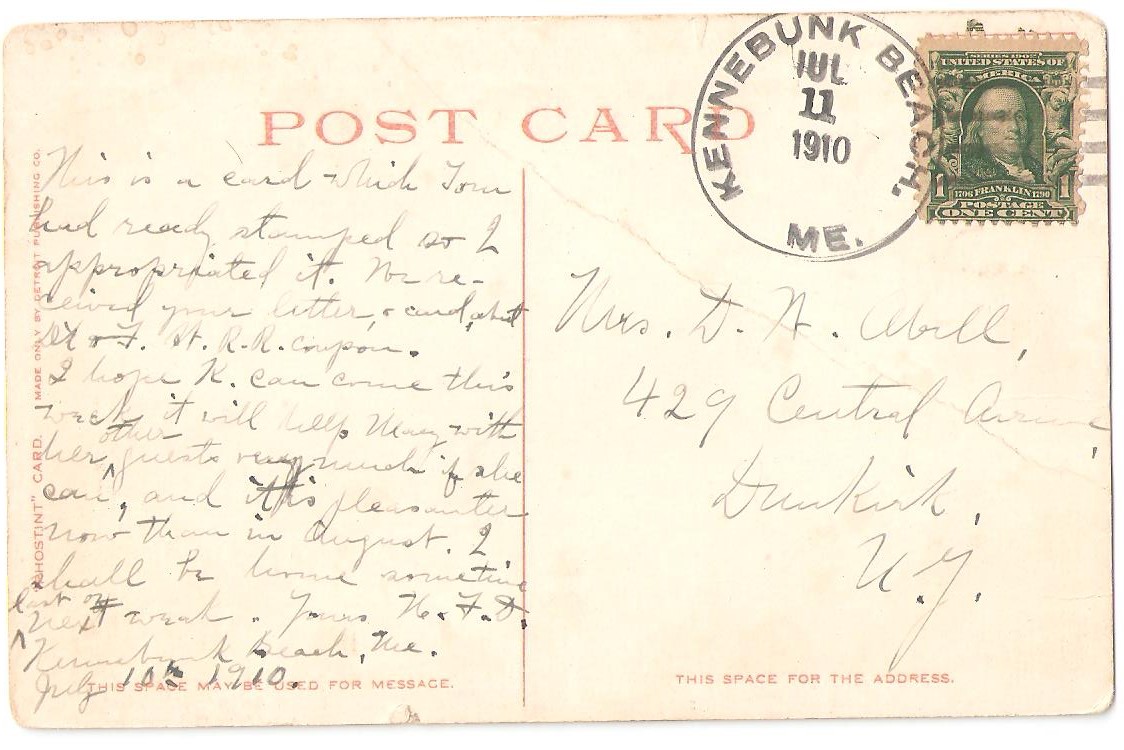 POST CARD
KENNEBUNK BEACH,
JUL
11
1910
ME.
SERIES 1902
UNITED STATES OF
AMERICA
1 1706 FRANKLIN 1790 1
POSTAGE
ONE CENT
"PHOSTINT" CARD. MADE ONLY BY DETROIT PUBLISHING CO.
This is a card which Tom
had ready stamped so I
appropriated it. We re-
ceived your letter, & card,
& F. St. R.R. coupon.
I hope K. can come this
week it will help Mary with
her other guests very much if she
can, and it is pleasanter
now than in August. I
shall be home sometime
last of next week. Yours H. F. D.
Kennebunk Beach, Me.
July 10th 1910.
THIS SPACE MAY BE USED FOR MESSAGE.
Mrs. D. N. Abell,
429 Central Avenue,
Dunkirk,
N.Y.
THIS SPACE FOR THE ADDRESS.